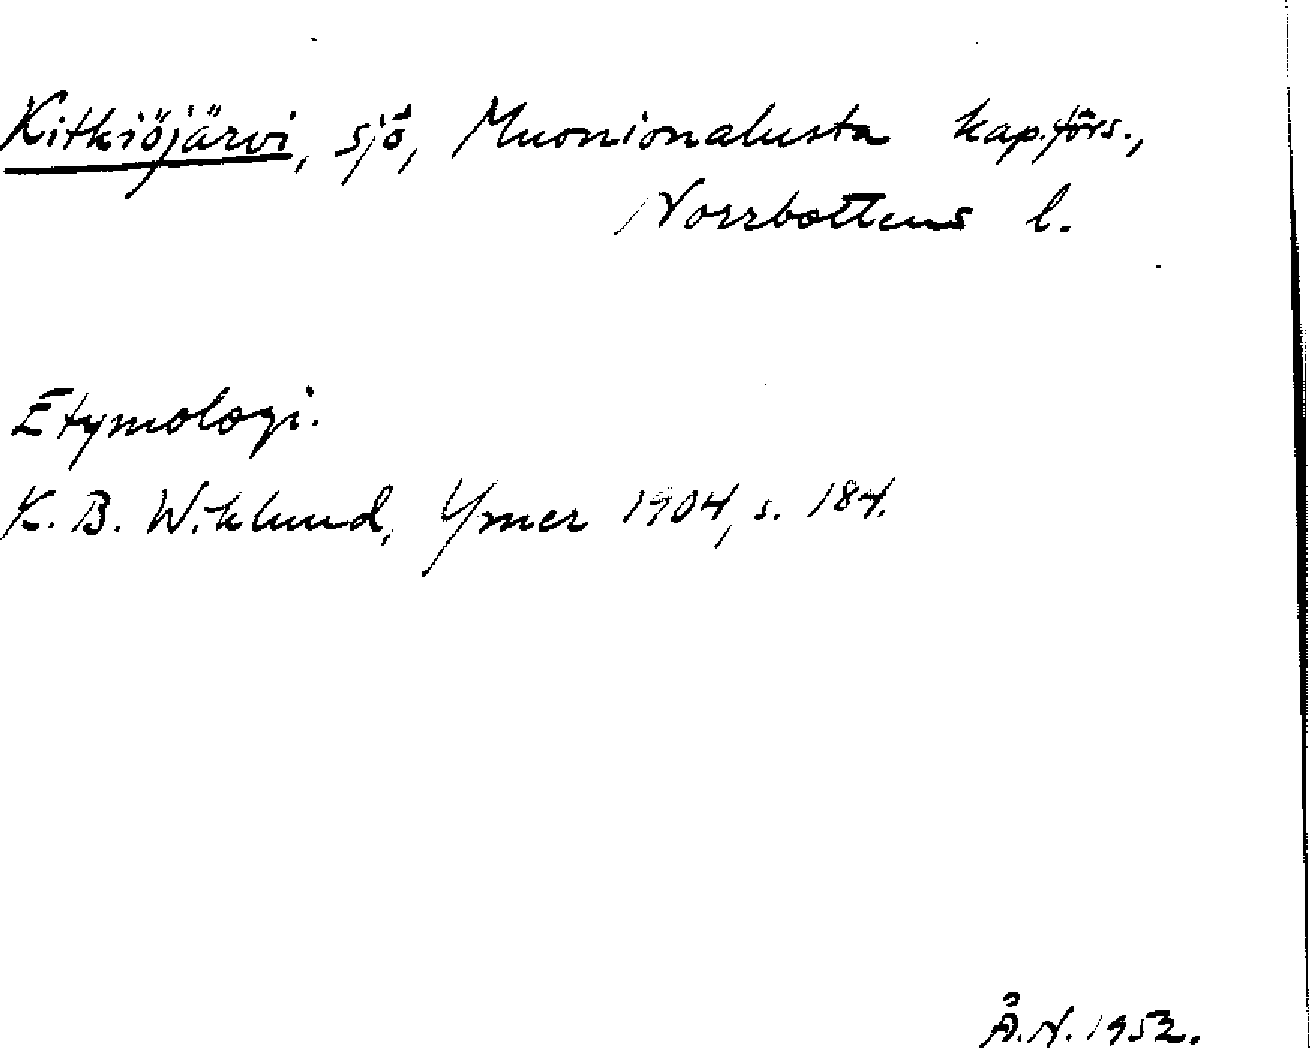 Kitkiöjärvi, sjö, Muonionalusta kap.förs.,
Norrbottens l.
Etymologi.
K. B. Wiklund, Ymer 1904, s. 184.
Å.N. 1952.